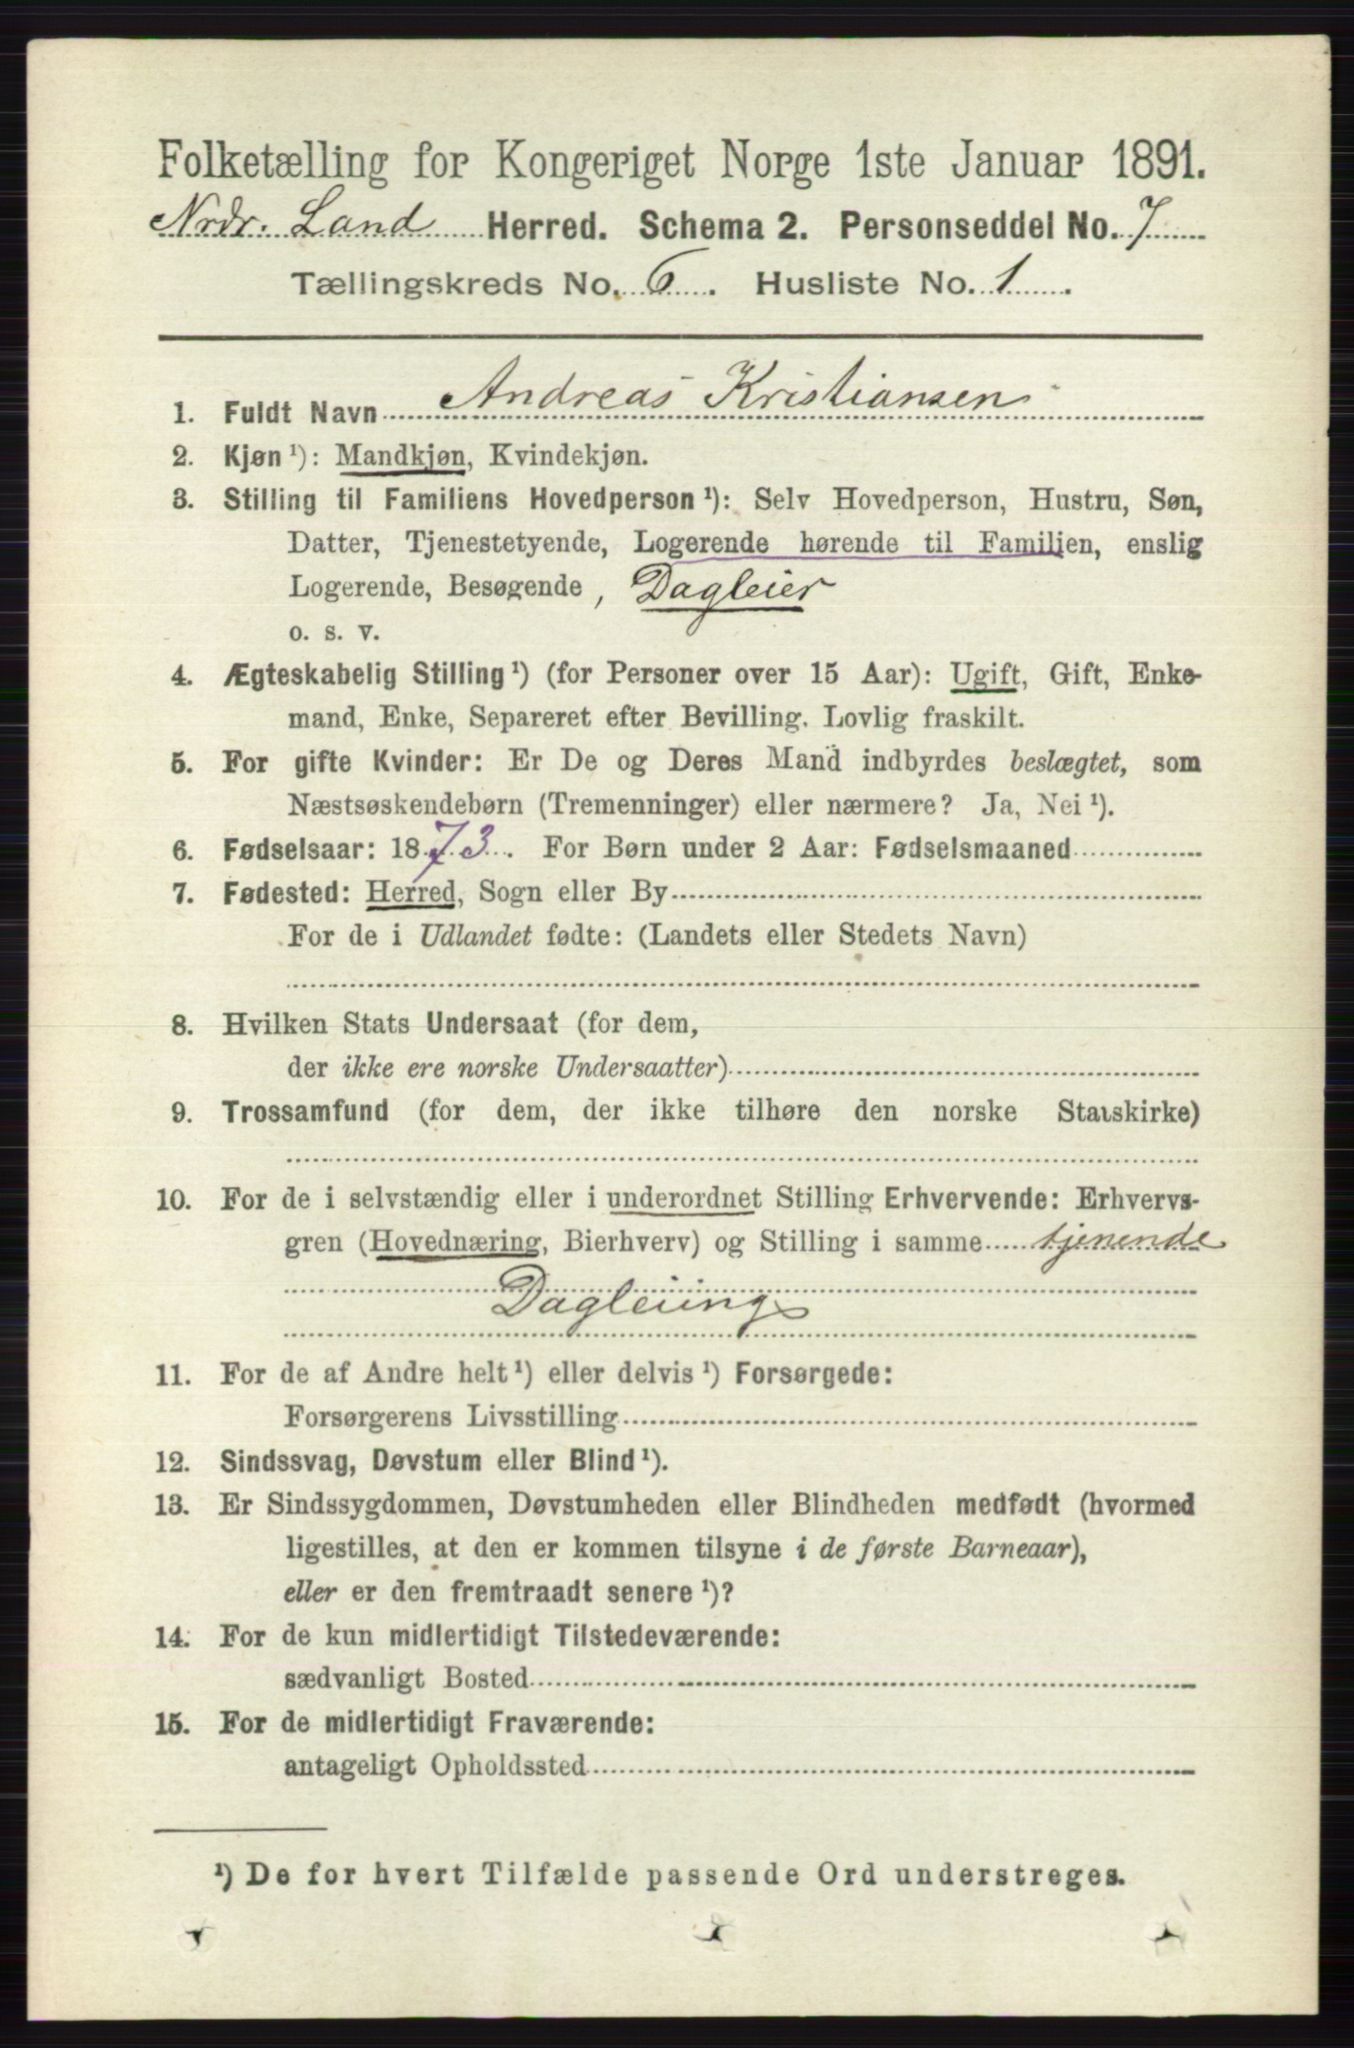 Folketælling for Kongeriget Norge 1ste Januar 1891.
Nrdr. Land Herred. Schema 2. Personseddel No. 7
Tællingskreds No. 6. Husliste No. 1.
Andreas Kristiansen
1. Fuldt Navn
2. Kjøn ¹): Mandkjøn, Kvindekjøn.
3. Stilling til Familiens Hovedperson ¹): Selv Hovedperson, Hustru, Søn,
Datter, Tjenestetyende, Logerende hørende til Familien, enslig
Logerende, Besøgende, Dagleier
o. s. v.
4. Ægteskabelig Stilling ¹) (for Personer over 15 Aar): Ugift, Gift, Enke-
mand, Enke, Separeret efter Bevilling. Lovlig fraskilt.
5. For gifte Kvinder: Er De og Deres Mand indbyrdes beslægtet, som
Næstsøskendebørn (Tremenninger) eller nærmere? Ja, Nei ¹).
6. Fødselsaar: 1873. For Børn under 2 Aar: Fødselsmaaned
7. Fødested: Herred, Sogn eller By
For de i Udlandet fødte: (Landets eller Stedets Navn)
8. Hvilken Stats Undersaat (for dem,
der ikke ere norske Undersaatter)
9. Trossamfund (for dem, der ikke tilhøre den norske Statskirke)
10. For de i selvstændig eller i underordnet Stilling Erhvervende: Erhvervs-
gren (Hovednæring, Bierhverv) og Stilling i samme tjenende
Dagleiing
11. For de af Andre helt ¹) eller delvis ¹) Forsørgede:
Forsørgerens Livsstilling
12. Sindssvag, Døvstum eller Blind ¹).
13. Er Sindssygdommen, Døvstumheden eller Blindheden medfødt (hvormed
ligestilles, at den er kommen tilsyne i de første Barneaar),
eller er den fremtraadt senere ¹)?
14. For de kun midlertidigt Tilstedeværende:
sædvanligt Bosted
15. For de midlertidigt Fraværende:
antageligt Opholdssted
¹) De for hvert Tilfælde passende Ord understreges.